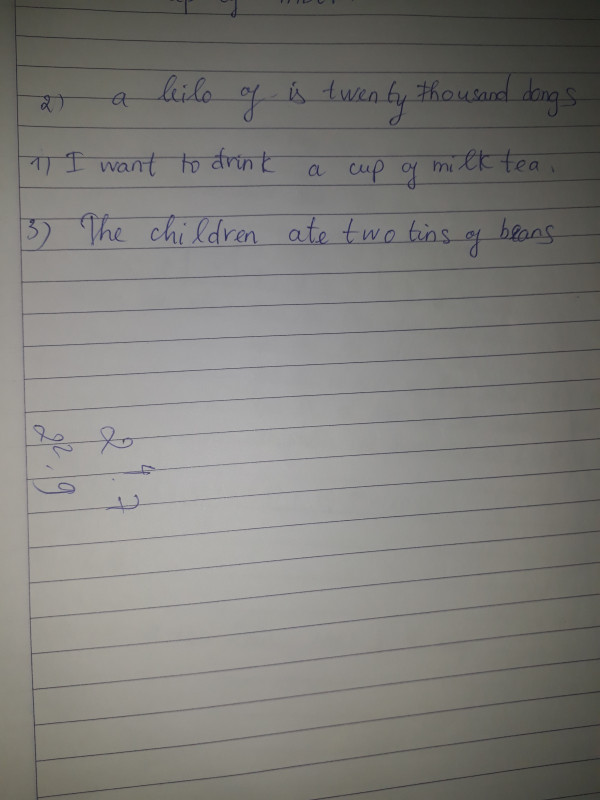 2) a kilo of is twenty thousand dongs
1) I want to drink a cup of milk tea.
3) The children ate two tins of beans